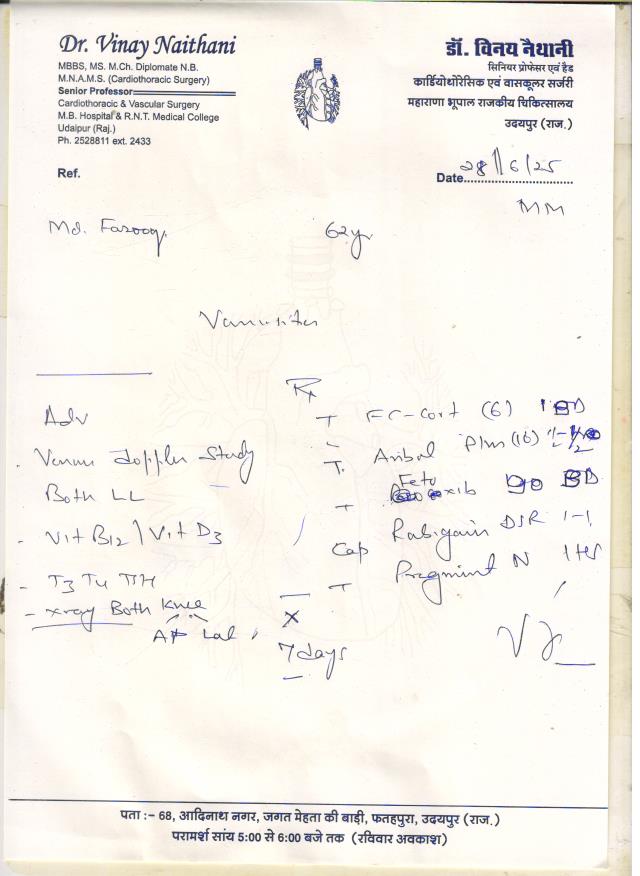 Dr. Vinay Naithani
MBBS, MS. M.Ch. Diplomate N.B.
M.N.A.M.S. (Cardiothoracic Surgery)
Senior Professor
Cardiothoracic & Vascular Surgery
M.B. Hospital & R.N.T. Medical College
Udaipur (Raj.)
Ph. 2528811 ext. 2433
डॉ. विनय नैथानी
सिनियर प्रोफेसर एवं हैड
कार्डियोथोरेसिक एवं वासकूलर सर्जरी
महाराणा भूपाल राजकीय चिकित्सालय
उदयपुर (राज.)
Ref.
Date 28/6/25
MM
Md. Farooq 62yr
Rx
Adv
Venous Doppler Study
Both LL
- Vit B12 / Vit D3
- T3 T4 TSH
- xray Both Knee
AP Lat
T FC-Cort (6) 1 BD
T. Plus (16)
T 90 BD
Cap Rabigain DSR 1-1
T N 1 HS
X
7 days
पता :- 68, आदिनाथ नगर, जगत मेहता की बाड़ी, फतहपुरा, उदयपुर (राज.)
परामर्श सांय 5:00 से 6:00 बजे तक (रविवार अवकाश)